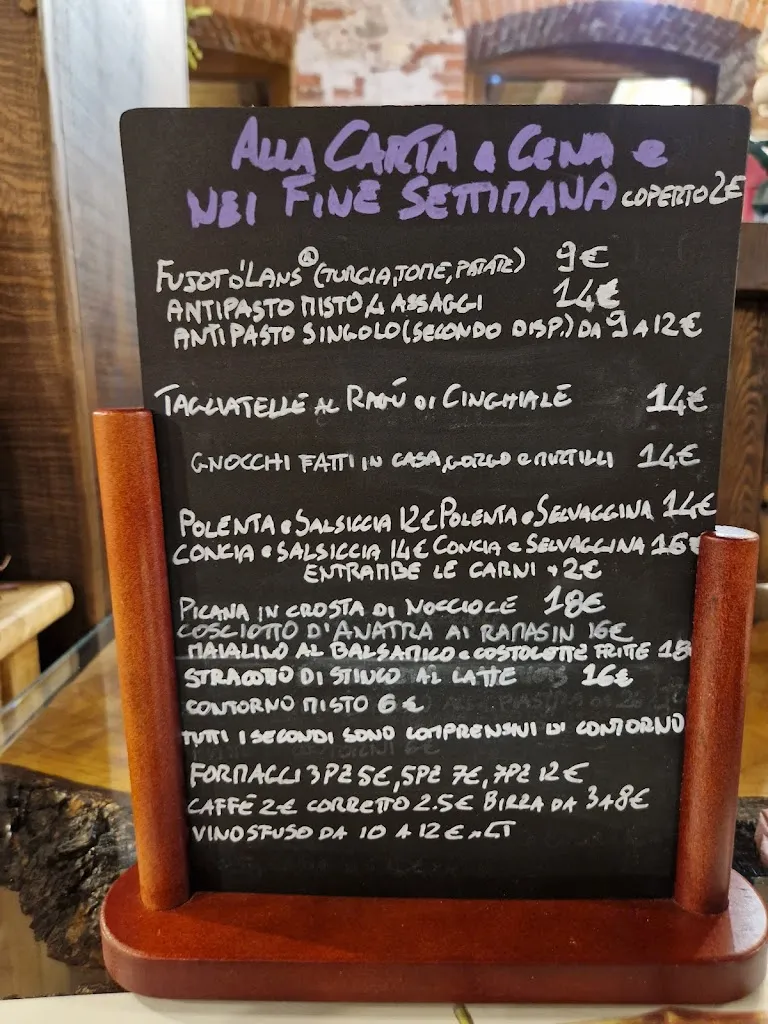 ALLA CARTA a CENA e
NEI FINE SETTIMANA COPERTO 2€
FUJOT d'LANS® (TURGIA, TOME, PATATE) 9€
ANTIPASTO MISTO 4 ASSAGGI 14€
ANTIPASTO SINGOLO (SECONDO DISP.) DA 9 A 12€
TAGLIATELLE AL RAGÚ DI CINGHIALE 14€
GNOCCHI FATTI IN CASA, GORGO e MIRTILLI 14€
POLENTA e SALSICCIA 12€ POLENTA e SELVAGGINA 14€
CONCIA e SALSICCIA 14€ CONCIA e SELVAGGINA 16€
ENTRAMBE LE CARNI +2€
PICANA IN CROSTA DI NOCCIOLE 18€
COSCIOTTO D'ANATRA AI RAMASIN 16€
MAIALINO AL BALSAMICO e COSTOLETTE FRITTE 18
STRACOTTO DI STINCO AL LATTE 16€
CONTORNO MISTO 6€
TUTTI I SECONDI SONO COMPRENSIVI DI CONTORNO
FORMAGGI 3PZ 5€, 5PZ 7€, 7PZ 12€
CAFFÉ 2€ CORRETTO 2.5€ BIRRA DA 3 A 8€
VINO SFUSO DA 10 A 12€ AL LT